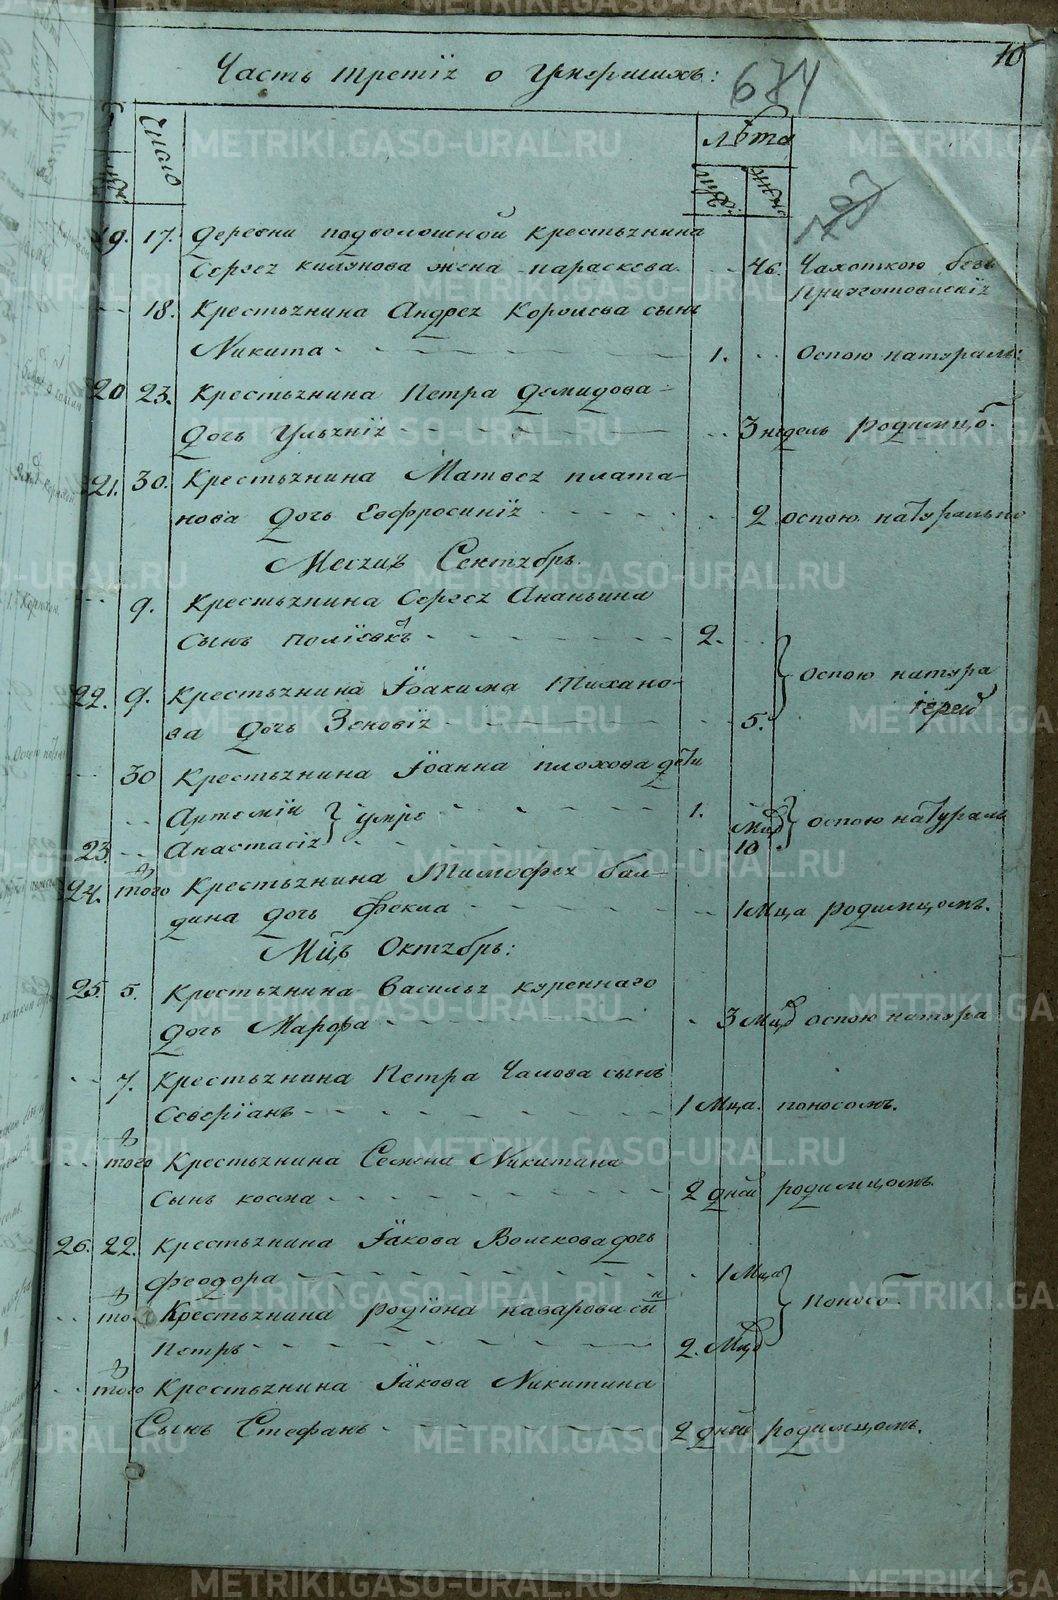 Часть третія о Умершихъ:
674
10
Число
лѣта
19. 17. Деревни подволошной крестьянина
Сергея килунова жена параскева. 46. Чахоткою безъ
Приуготовленія
18. Крестьянина Андрея Королева сынъ
Никита 1. Оспою натураль:
20 23. Крестьянина Петра Демидова
Дочь Ульянія 3 недель родимцо.
21. 30. Крестьянина Матвея плата-
нова Дочь Евфросинія 2 оспою натурально
Месяцъ Сентябрь.
9. Крестьянина Сергея Ананьина
Сынъ поліевкъ 2.
Оспою натура
22. 9. Крестьянина Іоакима Тихано-
ва Дочь Зеновія 5.
30 Крестьянина Іоанна плохова дети
Артемій умре 1.
оспою натураль
23. Анастасія Мцо 10
24. того Крестьянина Тимофея бал-
дина дочь Фекла 1 Мца родимцомъ.
Мцъ Октябрь:
25. 5. Крестьянина Василья куреннаго
Дочь Марфа 3 Мцо оспою натура
7. Крестьянина Петра Чалова сынъ
Северіанъ 1 Мца. поносомъ.
того Крестьянина Семена Никитина
Сынъ косма 2 дней родимцомъ.
26. 22. Крестьянина Іакова Волкова дочь
Феодора 1 Мца
Поносо
то Крестьянина родіона назарова сын
Петръ 2. Мцо
того Крестьянина Іакова Никитина
Сынъ Стефанъ 2 дней родимцомъ.
METRIKI.GASO-URAL.RU